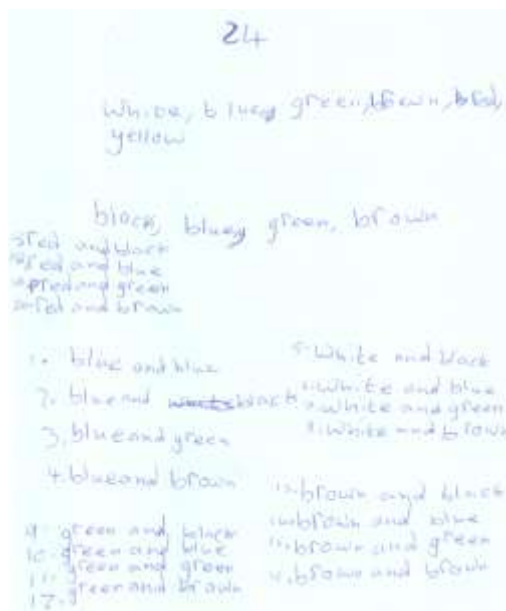 24
white, blue, green, brown, red,
yellow
black, blue, green, brown
red and black
red and blue
red and green
red and brown
1. blue and blue
2. blue and black
3. blue and green
4. blue and brown
5. White and black
6. White and blue
7. White and green
8. White and brown
9. green and black
10. green and blue
11. green and green
12. green and brown
brown and black
brown and blue
brown and green
brown and brown